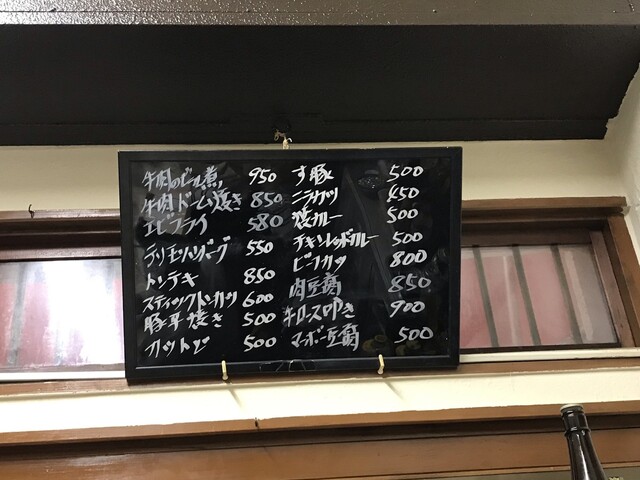 牛肉のビール煮 950
牛肉ドーム焼き 850
エビフライ 580
テリエッハンバーグ 550
トンテキ 850
スティックトンカツ 600
豚平焼き 500
500
す豚 500
ニラカツ 450
焼カレー 500
チキンレッドカレー 500
ビーフカツ 800
肉豆腐 850
牛ロース叩き 900
マーボー豆腐 500